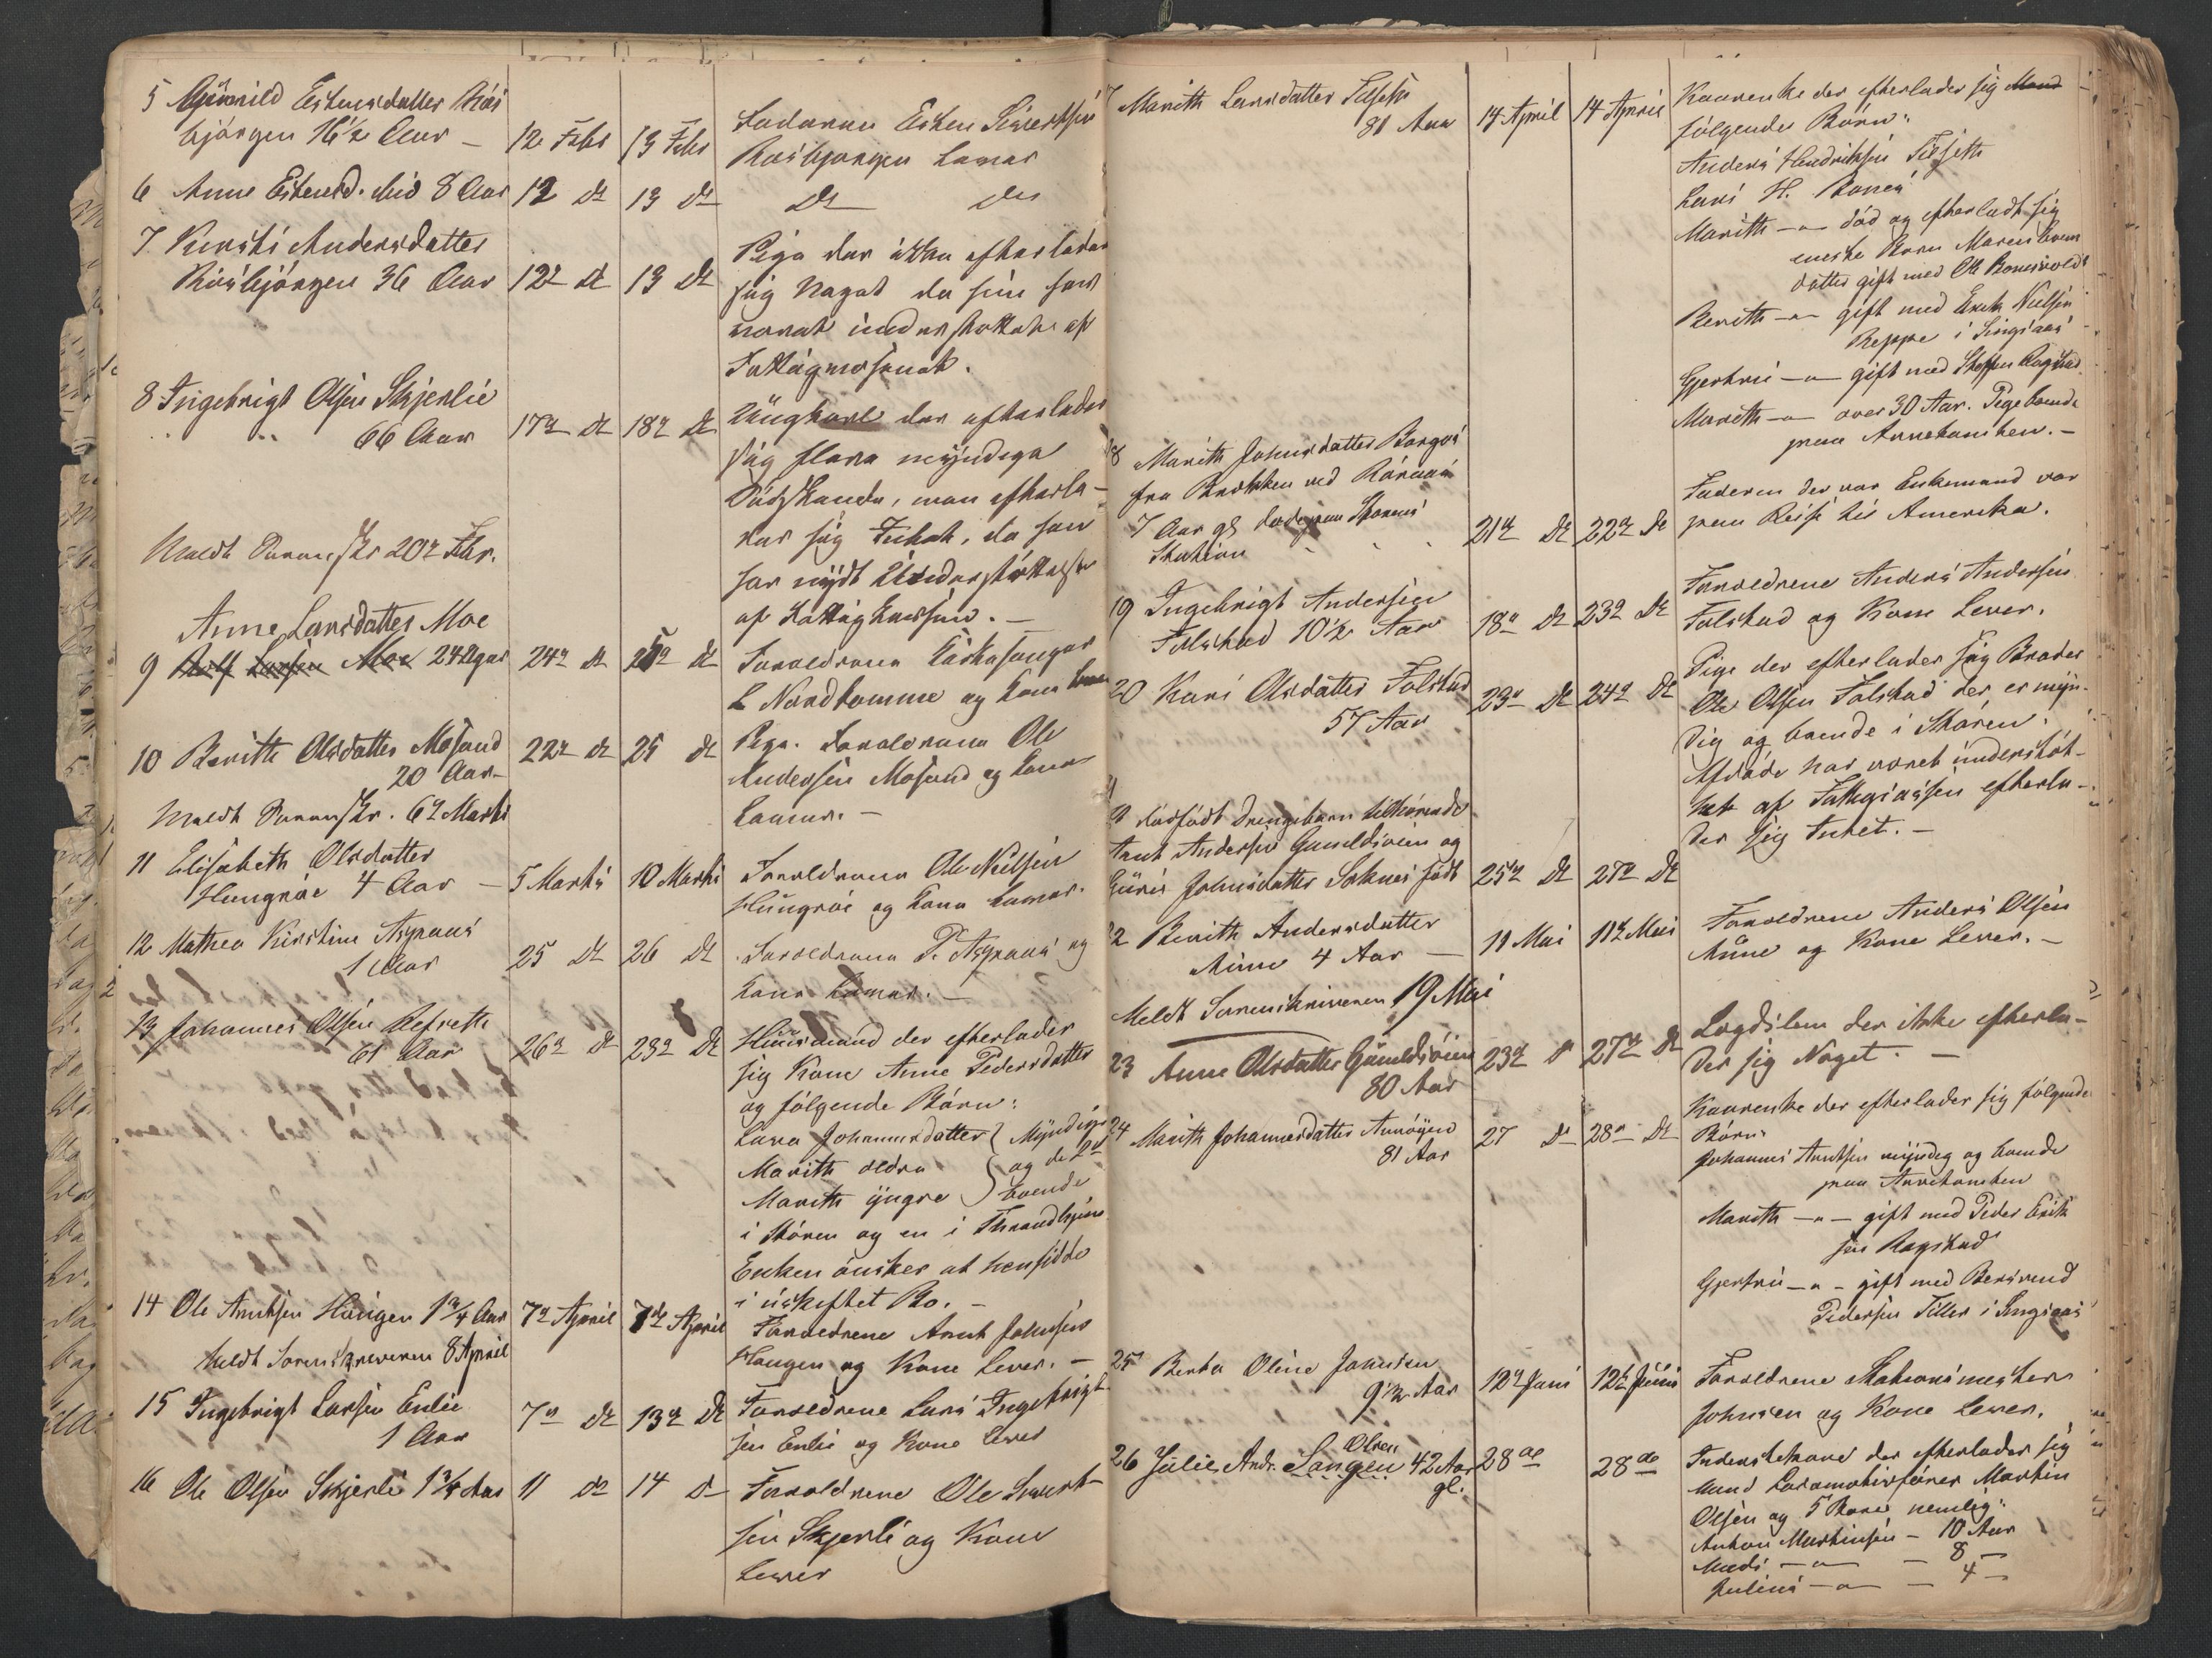 5 Gunnild Estensdatter Rós
bjórgen 16½ Aar — 12 Febr 13 Febr
Faderen Esten Sivertsen
Rosbjorgen Lever
6 Anne Estensd. ibid 8 Aar 12 D 13 D
D D
7 Kirsti Andersdatter
Rósbjórgen 36 Aar 12 D 13 D
Pige der ikke efterlader
sig Noget da hun har
været understøttet af
Fattigvæsenet.
8 Ingebrigt Olsen Skjerlie
66 Aar 17 D 18 D
Ungkarl der efterlader
sig flere myndige
Sødskende, men efterla-
der sig Intet, da han
har nydt Understøttelse
af Fattigkassen. —
Meldt Sorenskr 20 Febr.
Anne Larsdatter Moe
9 24 Dage 24 D 25 D
Forældrene Kirkesanger
L Nordtømme og Kone Lever
10 Berith Olsdatter Mosand
20 Aar 22 D 25 D
Pige. Forældrene Ole
Andersen Mosand og Kone
Lever. —
Meldt Sorenskr. 6 Marts
11 Elisabeth Olsdatter
Hungnæs 4 Aar — 5 Marts 10 Marts
Forældrene Ole Nielsen
og Kone Lever.
12 Mathea Kirstine Aspaas
1 Aar 25 D 26 D
Forældrene P. Aspaas og
Kone Lever. —
13 Johannes Olsen Refseth
61 Aar 26 D 28 D
Huusmand der efterlader
sig Kone Anne Pedersdatter
og følgende Børn:
Johannesdatter Myndige
Marith ældre og de 2
Marith yngre boende
i Støren og en i Throndhjem
Enken ønsker at hensidde
i uskiftet Bo. —
14 Ole Arntsen Haugen 1¾ Aar 7 April 7 April
Forældrene Arnt Johnsen
Haugen og Kone Lever. —
Meldt Sorenskriveren 8 April
15 Ingebrigt Larsen Enlie
1 Aar 7 D 13 D
Forældrene Lars Ingebrigt
sen Enlie og Kone Lever
16 Ole Olsen Skjerli 1¾ Aar 11 D 14 D
Forældrene Ole Sivert-
sen Skjerli og Kone
Lever
7 Marith Larsdatter Folseth
81 Aar 14 April 14 April
Kaarenke der efterlader sig Mand
følgende Børn:
Anders Hendriksen Folseth
Lars H. Bones
Marith — død og efterladt sig
eneste Barn Maren
datter gift med Ole
Berith — gift med Erik Nielsen
Reppe i Singsaas
Gjertrú — gift med Steffen Rogstad
Marith — over 30 Aar. Pige boende
paa Annekanten. —
18 Marith Johnsdatter Borgos
fra Brekken ved Róraas
7 Aar gl. døde paa Størens
Station 21 D 22 D
Faderen der var Enkemand var
paa Reise til Amerika.
19 Ingebrigt Andersen
Folstad 10½ Aar 18 D 23 D
Forældrene Anders Andersen
Folstad og Kone Lever.
20 Kari Olsdatter Folstad
57 Aar 23 D 24 D
Pige der efterlader sig Broder
Ole Olsen Folstad der er myn-
dig og boende i Støren.
Afdøde har været understøt-
tet af Fattigkassen efterla-
der sig Intet. —
dødfødt Drengebarn tilhørende
Arnt Andersen og
Gúri Johnsdatter Soknes født 25 D 27 D
22 Berith Andersdatter
Aúne 4 Aar — 11 Mai 11 Mai
Forældrene Anders Olsen
Aúne og Kone Lever. —
Meldt Sorenskriveren 19 Mai
23 Anne Olsdatter
80 Aar 23 D 27 D
Lægdslem der ikke efterla-
der sig Noget. —
24 Marith Johannesdatter
81 Aar 27 D 28 D
Kaarenke der efterlader sig følgende
Børn:
Johannes Arntsen myndig og boende
paa Annekanten
Marith — gift med Peder Erik
sen Rogstad
Gjertrú — gift med Bersvend
Pedersen Tiller i Singsaas
25 Berta Oline Johnsen
9½ Aar 12 Juni 12 Juni
Forældrene Stationsmester
Johnsen og Kone Lever.
26 Julie Andr. Langen Olsen 42 Aar
gl. 28 do 28 do
Inderstekone der efterlader sig
Mand Locomotivfører Martin
Olsen og 5 Børn nemlig:
Anton Martinsen — 10 Aar
— 8 —
Julius — 4 —